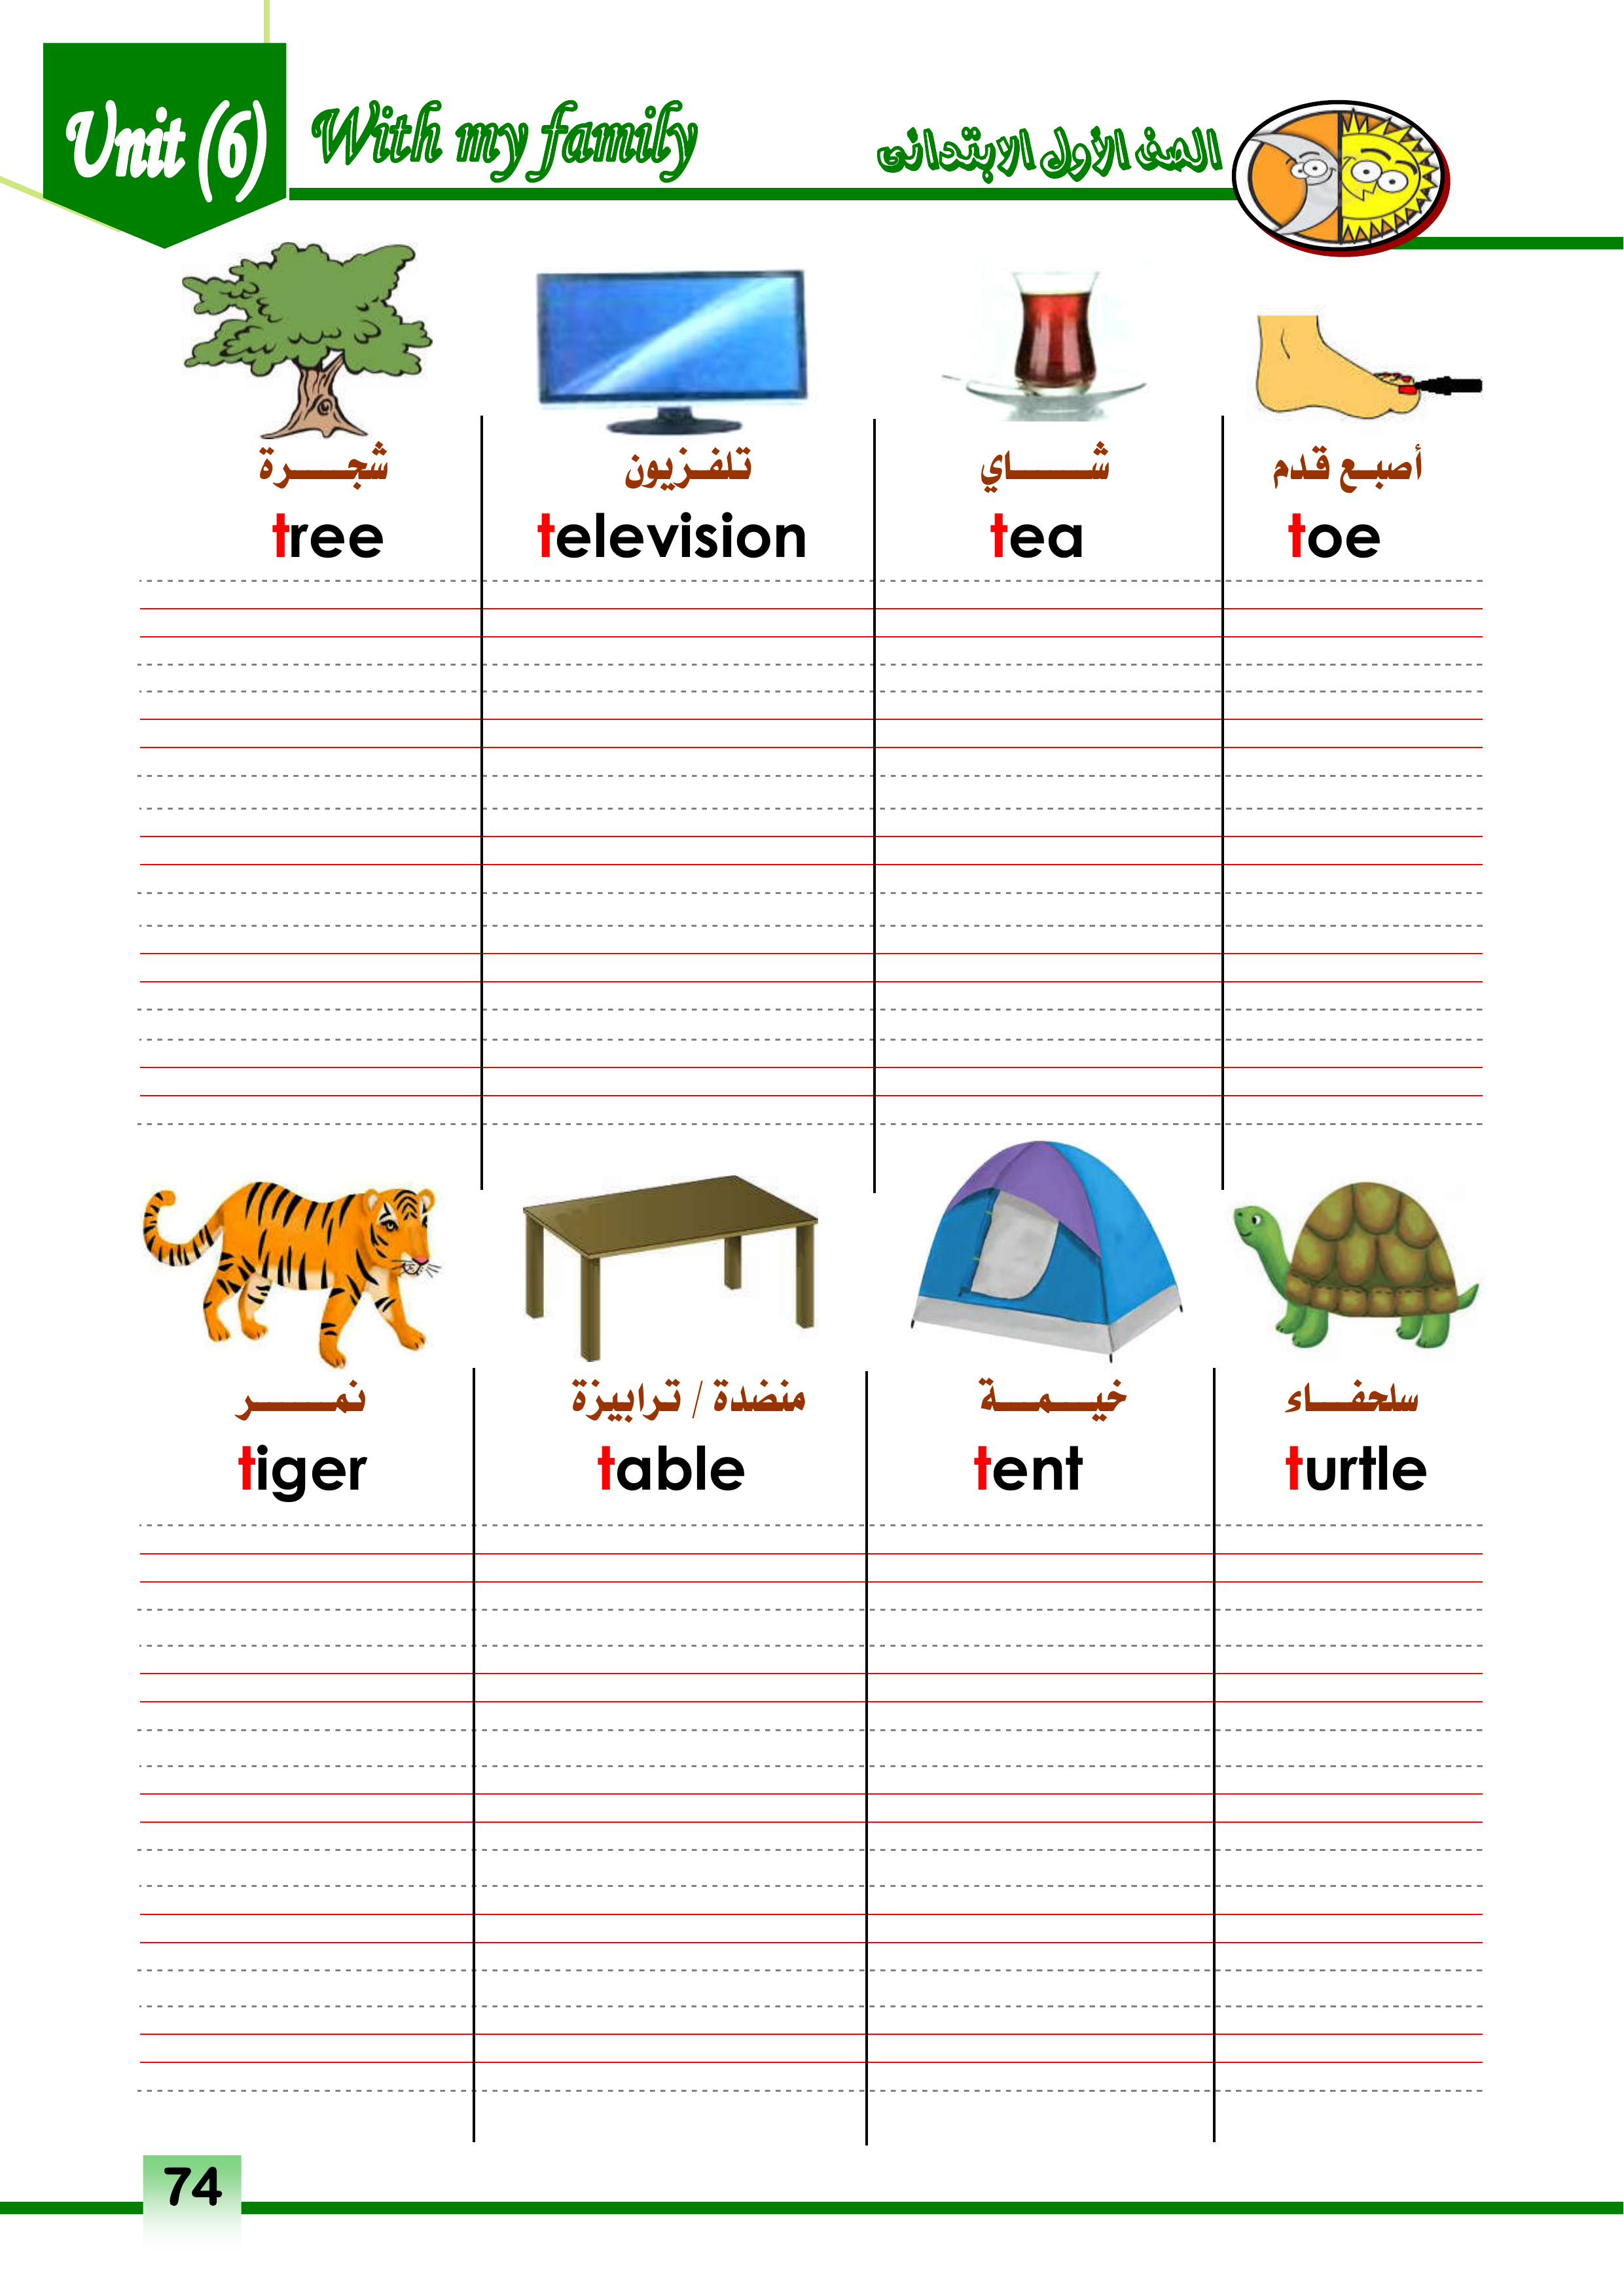 Unit (6) With my family الصف الأول الابتدائى
شجرة تلفزيون شاي أصبع قدم
tree television tea toe
نمر منضدة / ترابيزة خيمة سلحفاء
tiger table tent turtle
74